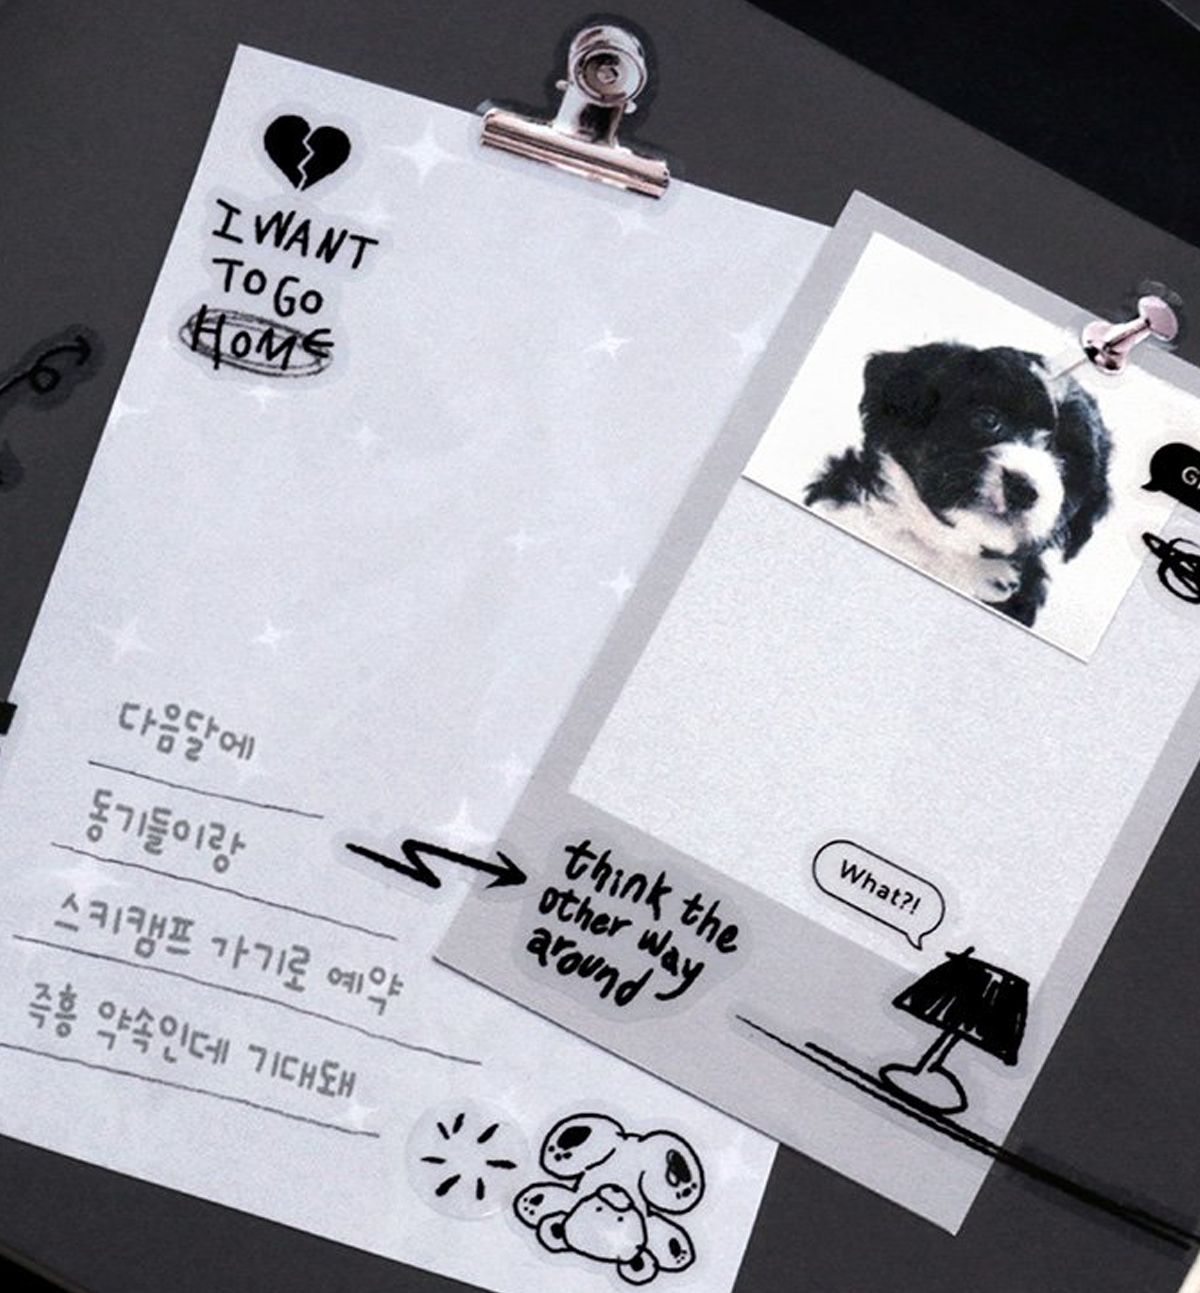 I WANT
TO GO
HOME
다음달에
동기들이랑
스키캠프 가기로 예약
즉흥 약속인데 기대돼
think the
other way
around
What?!